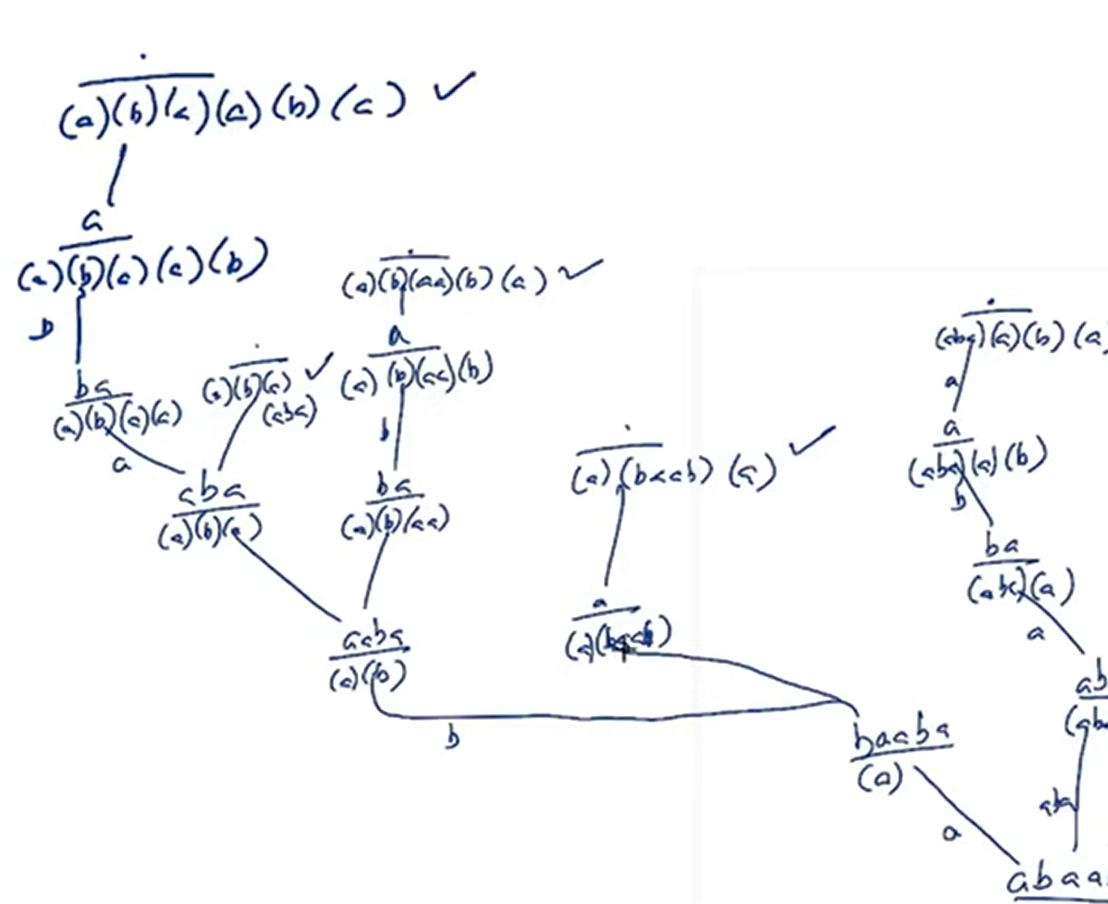 .
(a)(b)(a)(a)(b)(a) ✓
a
(a)(b)(a)(a)(b)
b
ba
(a)(b)(a)(a)
a
.
(a)(b)(a) ✓
(aba)
aba
(a)(b)(a)
.
(a)(b)(aa)(b)(a) ✓
a
(a)(b)(aa)(b)
b
ba
(a)(b)(aa)
aaba
(a)(b)
b
.
(a)(baab)(a) ✓
a
(a)(baab)
baaba
(a)
a
.
(aba)(a)(b)(a
a
a
(aba)(a)(b)
b
ba
(aba)(a)
a
ab
(aba
aba
abaa